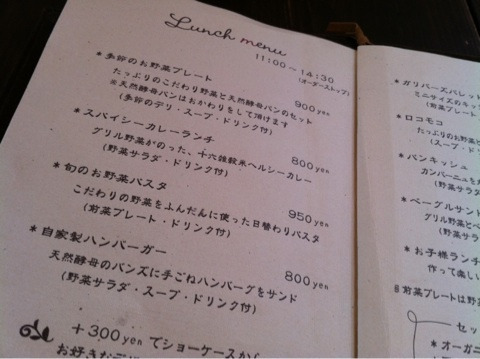 Lunch menu
11:00～14:30
(オーダーストップ)
*多弥のお野菜プレート 900yen
たっぷりのこだわり野菜と天然酵母パンのセット
※天然酵母パンはおかわりをして頂けます
(多弥のデリ・スープ・ドリンク付)
*スパイシーカレーランチ 800yen
グリル野菜がのった、十六雑穀米ヘルシーカレー
(野菜サラダ・ドリンク付)
*旬のお野菜パスタ 950yen
こだわりの野菜をふんだんに使った日替わりパスタ
(前菜プレート・ドリンク付)
*自家製ハンバーガー 800yen
天然酵母のバンズに手ごねハンバーグをサンド
(野菜サラダ・スープ・ドリンク付)
+300yenでショーケースか
お好きな
*ガリバーズパレッ
ミニサイズのキッ
(前菜プレート
*ロコモコ
たっぷりのお野菜と
(野菜サラダ
*パンキッシュ
カンパーニュを丸
(野菜サラダ
*ベーグルサンド
グリル野菜とベ
(野菜サラダ
*お子様ランチ
作って楽しい
前菜プレートは野菜
セッ
*オーガニ